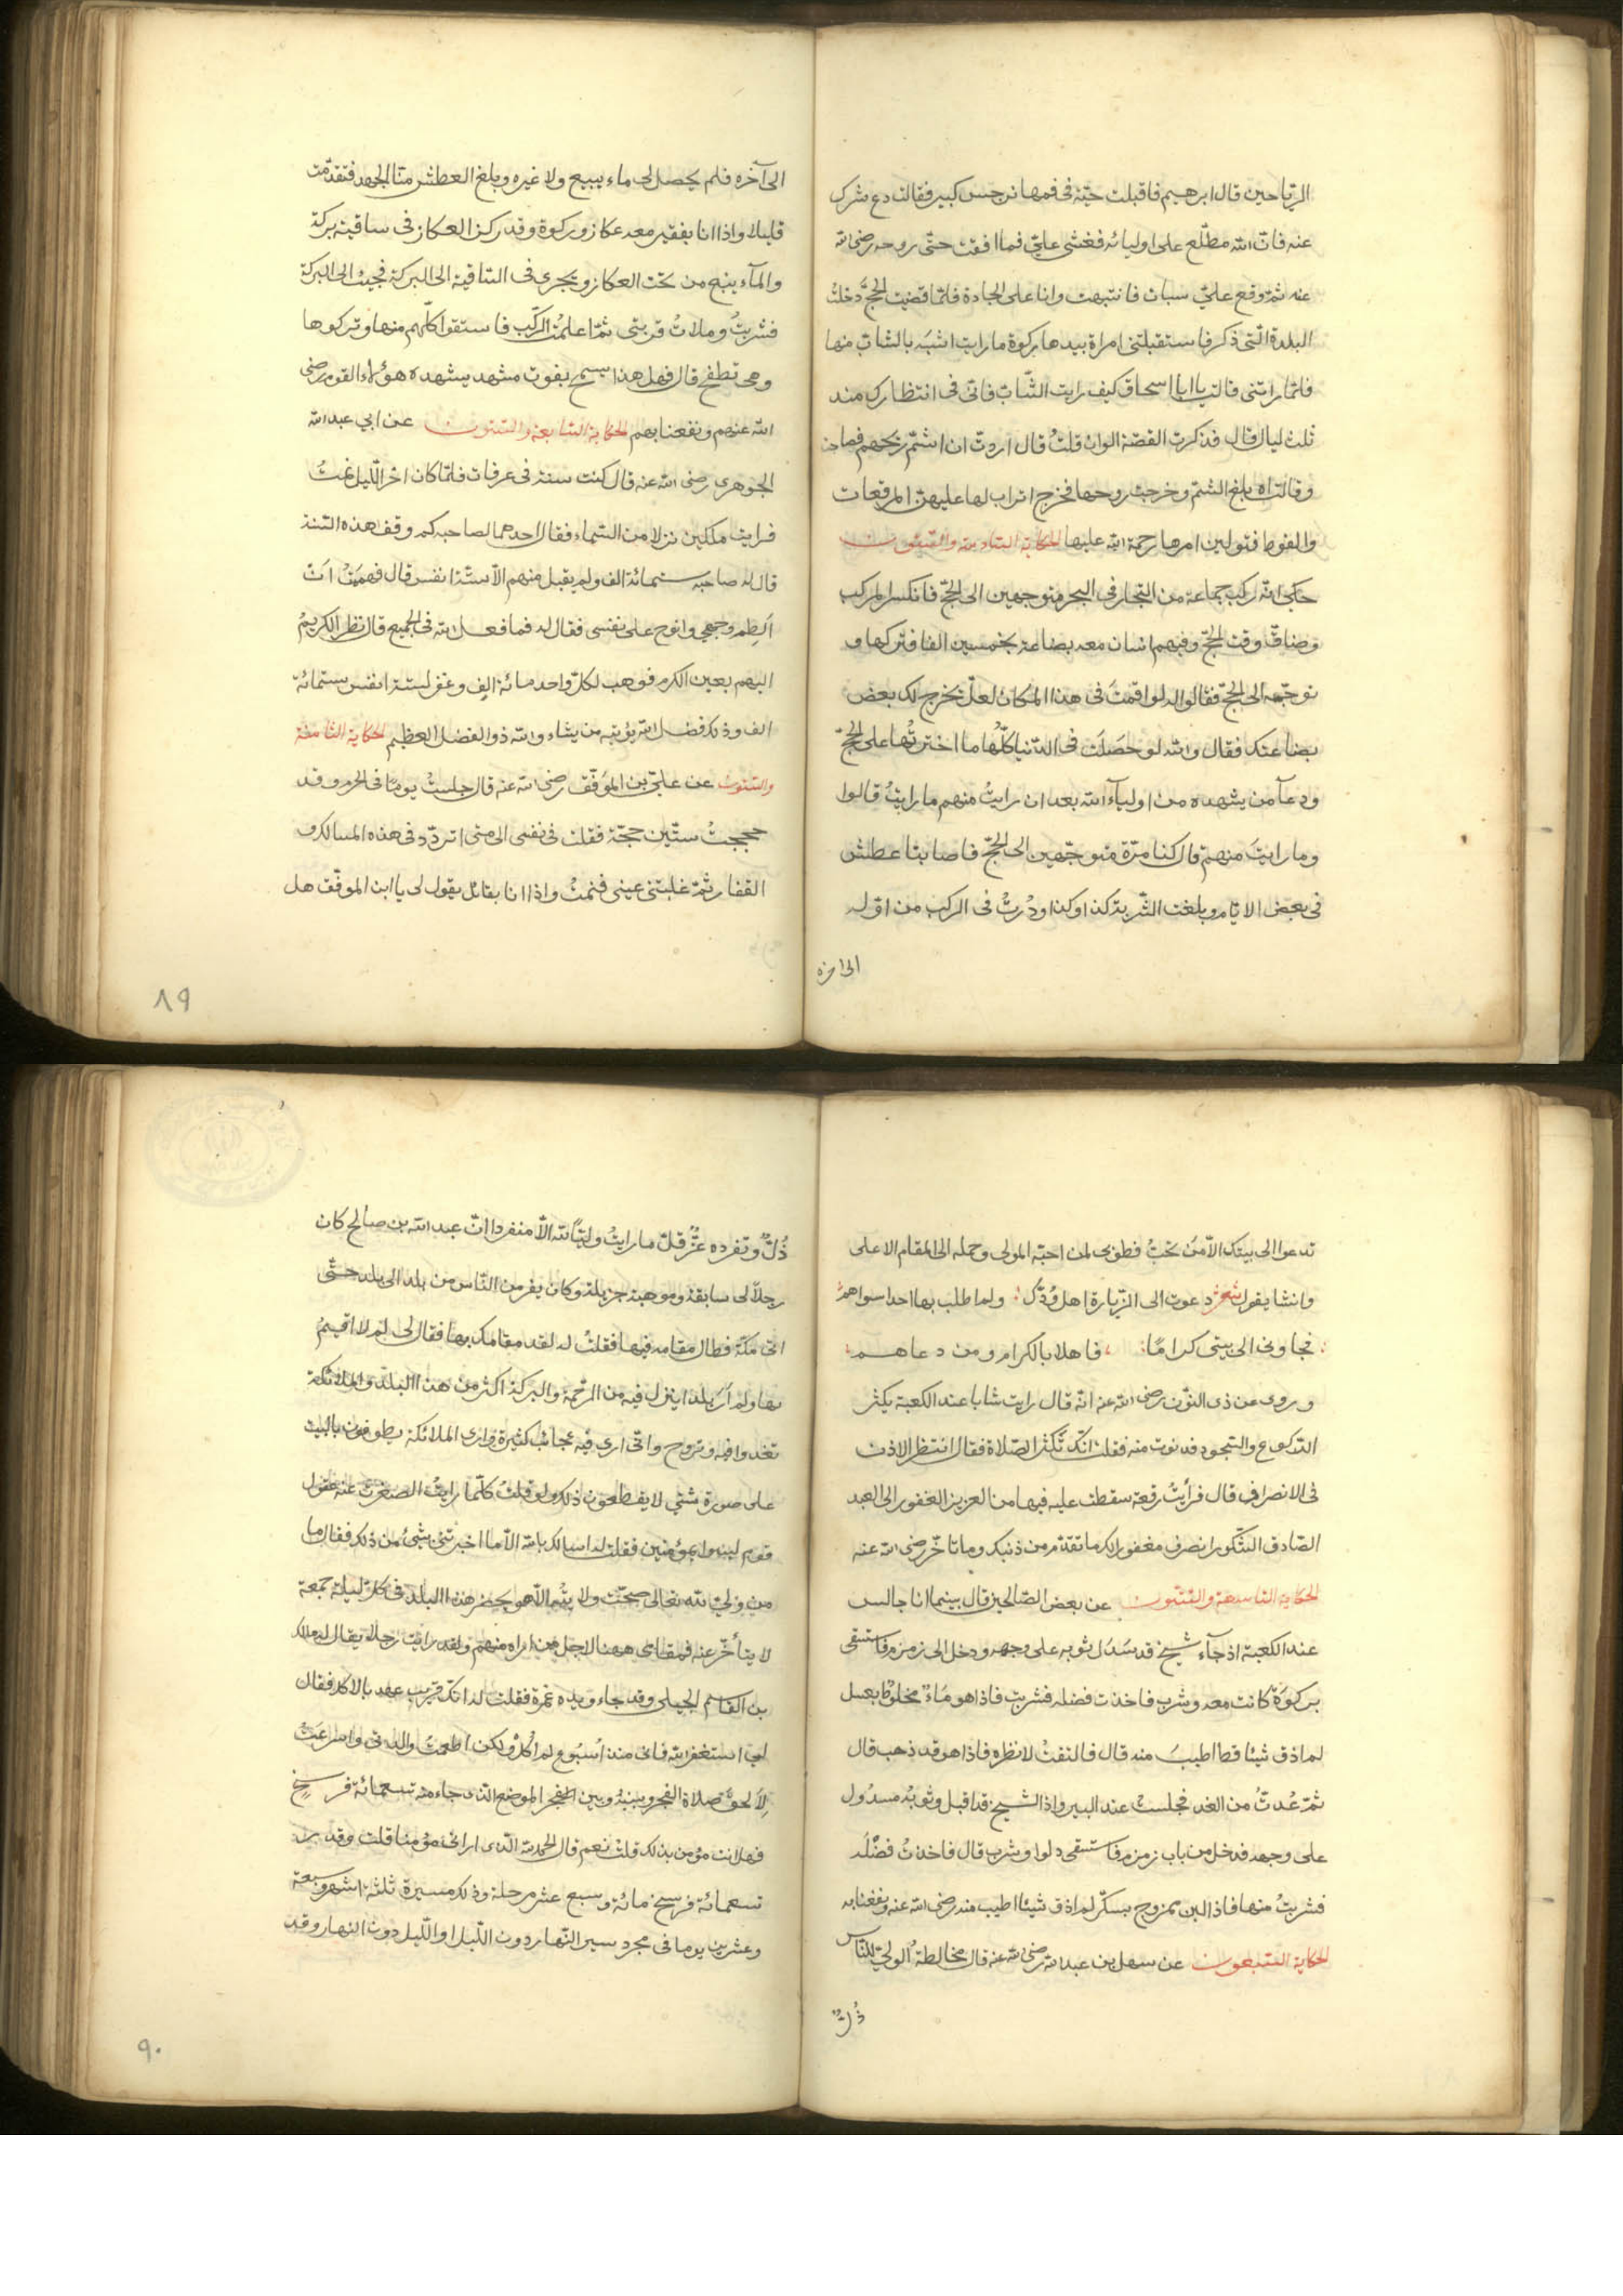 الرياحين قال ابرهيم فاقبلت حيّة في فمها نرجس كبير فقالت دع شرك
عنه فانّ الله مطّلع على اوليائه فغشى علىّ فما افقت حتّى روحه رضى الله
عنه ثمّ وقع علىّ سبات فانتبهت وانا على الجادة فلمّا قضيت الحجّ دخلتُ
البلدة الّتى ذكر فاستقبلتنى امراة بيدها ركوة ما رايت اشبَه بالشابّ منها
فلمّا راتنى قالت يا ابا اسحاق كيف رايت الشّاب فانّى فى انتظارك منذ
ثلث ليال قال فذكرت القصّة الى ان قلتُ قال اردت ان اشتمّ ريحهم فصاحت
وقالت اه بلغ الشتم وخرجت روحها فخرج اتراب لها عليهن المرقعات
والفوط فتولين امرها رحمة الله عليها الحكاية السّادسة والستّون
حكى انّه ركب جماعة من التجار فى البحر متوجهين الى الحجّ فانكسر المركب
وضاق وقت الحجّ وفيهم انسان معه بضاعة بخمسين الفا فتركها و
توجّه الى الحجّ فقالوا له لو اقمتَ فى هذا المكان لعلّ يخرج لك بعض
بضاعتك فقال والله لو حصَلَت فى الدّنيا كلّها ما اخترتُها على الحجّ
ودعآ من يشهده من اوليآء الله بعد ان رايتُ منهم ما رايتُ قالوا
وما رايتَ منهم قال كنا مرّة متوجّهين الى الحجّ فاصابنا عطش
فى بعض الايّام وبلغت الشّربة كذا وكذا ودُرتُ فى الركب من اوّله
الى آخره
الى آخره فلم يحصل لى ماء ببيع ولا غيره وبلغ العطش منّا الجهد فتقدّمت
قليلا واذا انا بفقير معه عكاز وركوة وقد ركز العكاز فى ساقية بركة
والمآء ينبع من تحت العكاز ويجرى فى السّاقية الى البركة فجئت الى البركة
فشربتُ وملاتُ قربتى ثمّ اعلمتُ الركّب فاستقوا كلّهم منها وتركوها
وهى تطفح قال فهل هذا يسمح بفوت مشهد يشهده هؤلاء القوم رضى
الله عنهم ونفعنا بهم الحكاية السّابعة والستّون عن ابي عبد الله
الجوهرى رضى الله عنه قال كنت سنة فى عرفات فلمّا كان اخر اللّيل نمتُ
فرايت ملكين نزلا من السّماء فقال احدهما لصاحبه كم وقف هذه السّنة
قال له صاحبه ستمائة الف ولم يقبل منهم الّا ستّة انفس قال فهمَمْتُ اَن
اَلطِم وجهى وانوح على نفسى فقال له فما فعل الله فى الجميع قال نظر الكريمُ
اليهم بعين الكرم فوهب لكلّ واحد مائة الف وغفر لستة انفس ستمائة
الف وذلك فضل الله يؤتيه من يشاء والله ذو الفضل العظيم الحكاية الثّامنة
والستّون عن علىّ بن الموفّق رضى الله عنه قال جلستُ يومًا فى الحرم وقد
حججتُ ستّين حجّة فقلت فى نفسى الى متى اتردّد فى هذه المسالك و
القفار ثمّ غلبتنى عينى فنمتُ واذا انا بقائل يقول لى يا ابن الموفّق هل
٨٩
تدعوا الى بيتك الّا مَن تحبُّ فطوبى لمن احبّه المولى وحمله الى المقام الاعلى
وانشا يقول شعر دعوت الى الزّيارة اهل وُدّى ولم اطلب بها احدا سواهم
فجاونى الى بيتى كرامًا فاهلا بالكرام ومن دعاهم
وروى عن ذى النّون رضى الله عنه انّه قال رايت شابا عند الكعبة يكثر
الرّكوع والسّجود فدنوت منه فقلت انّك تكثر الصّلاة فقال انتظر الاذن
فى الانصراف قال فرأيتُ رقعة سقطت عليه فيها من العزيز الغفور الى العبد
الصّادق الشّكور انصرف مغفورا لك ما تقدّم من ذنبك وما تاخّر رضى الله عنه
الحكاية التّاسعة والستّون عن بعض الصّالحين قال بينما انا جالس
عند الكعبة اذ جآء شيخ قد سَدَل ثوبه على وجهه ودخل الى زمزم فاستقى
بركوَة كانت معه وشرب فاخذت فضله فشربت فاذا هو مَاءٌ مخلوطٌ بعسل
لم اذق شيئا قط اطيبَ منه قال فالتفتُ لانظره فاذا هو قد ذهب قال
ثمّ عُدتُ من الغد فجلستُ عند البير واذا الشّيخ قد اقبل وثوبُه مسدُول
على وجهه فدخل من باب زمزم فاستقى دلوا وشرب قال فاخذتُ فضْلَه
فشربتُ منها فاذا لبن ممزوج بسكّر لم اذق شيئا اطيب منه رضى الله عنه ونفعنا به
الحكاية السّبعون عن سهل بن عبد الله رضى الله عنه قال مخالطة الولىّ للنّاس
ذُلّ
ذُلٌّ وتفرده عزٌّ قلّ ما رايتُ وليًّا لله الّا منفردا انّ عبد الله بن صالح كان
رجلاً له سابقة وموهبة جزيلة وكان يفر من النّاس من بلد الى بلد حتّى
اتى مكّة فطال مقامه فيها فقلتُ له لقد طال مقامك بها فقال لى لم لا اقيمُ
بها ولم اَر بلدا ينزل فيه من الرّحمة والبركة اكثر من هذا البلد والملائكة
تغدوا فيه وتروح وانّى ارى فيه عجائب كثيرة وارى الملائكة يطوفون بالبيت
على صورة شتّى لا يقطعون ذلك ولو قلتُ كلّما رايتُ لصغرت عنه عقول
قوم ليسوا بمؤمنين فقلت له اسالك بالله الّا ما اخبرتنى بشئ من ذلك فقال ما
من ولىّ لله تعالى صحّت ولايته الّا هو يحضر هذا البلد فى كلّ ليلة جمعة
لا يتأخّر عنه فمقامى ههنا لاجل من اراه منهم ولقد رايت رجلا يقال له مالك
بن القاسم الجيلى وقد جاء وبيده غمرة فقلت له انّك قريب عهد بالاكل فقال
لى استغفر الله فانّى منذ اُسبُوع لم اٰكُل ولكن اطعمتُ والدتى واسرعتُ
لاَلحقَ صلاة الفجر وبينه وبين الموضع الّذى جاء منه تسعمائة فرسخ
فهل انت مؤمن بذلك قلتُ نعم قال الحمد لله الّذى ارانى مؤمنا قلت وقد
تسعمائة فرسخ مائة وسبع عشر مرحلة وذلك مسيرة ثلثة اشهر وسبعة
وعشرين يوما فى مجرد سير النّهار دون اللّيل او اللّيل دون النهار وقد
٩٠